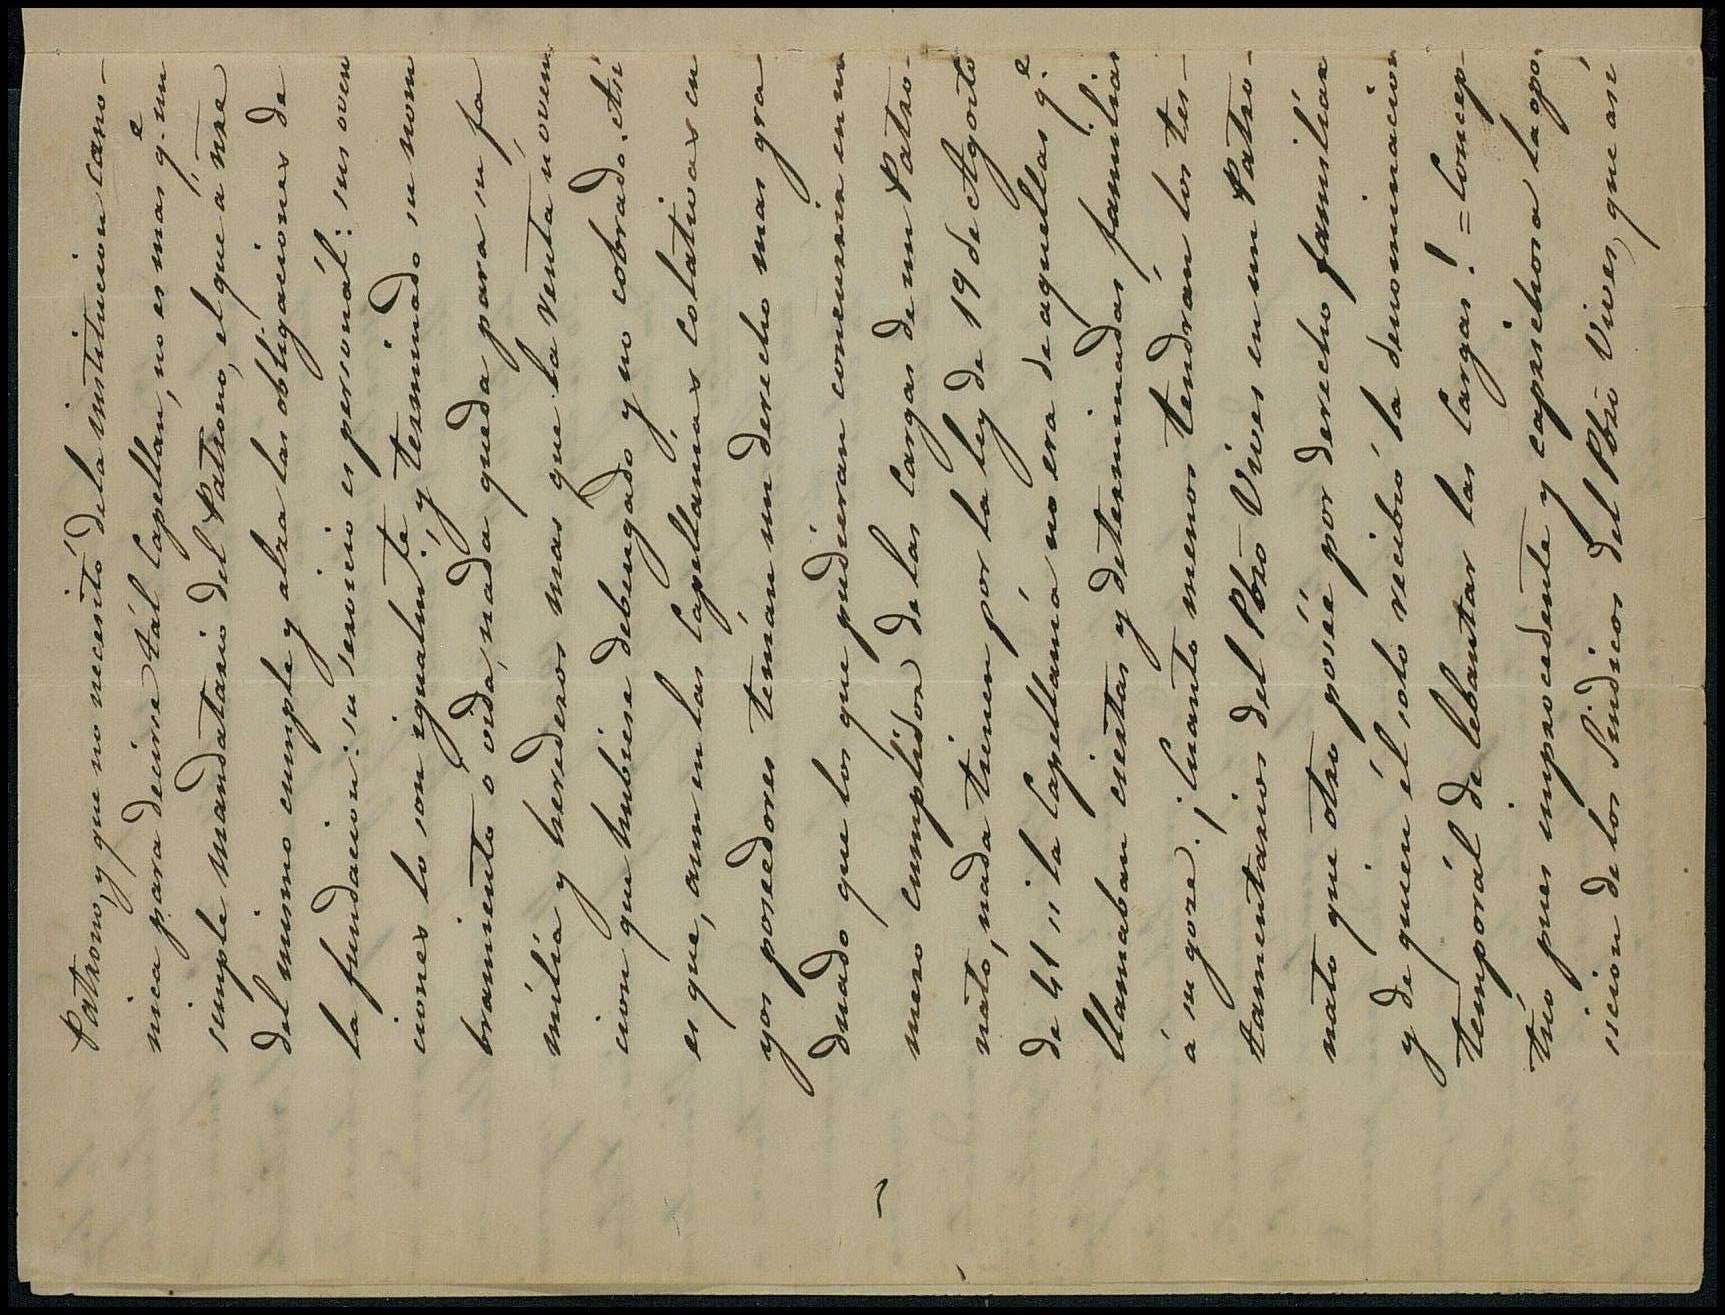 Patrono, y que no necesitó de la institucion cano-
nica para decirse tál Capellan, no es mas q.e un
simple mandatario del Patrono, el que á
del mismo cumple y alza las obligaciones de
la fundacion: su servicio es personál: sus oven
ciones lo son igualm.te y terminado su nom
bramiento ó vida, nada queda para su fa
milia y herederos mas que la renta ú oven
cion que hubiere debengado y no cobrado. Asi
es que, aun en las Capellanias colativas cu
yos poseedores tenian un derecho mas gra
duado que los que pudieran concurrir en un
mero cumplidor de las cargas de un Patro-
nato, nada tienen por la ley de 19 de Agosto
de 41 si la Capellania no era de aquellas q.e
llamaban ciertas y determinadas familias
á su goze. ¡Cuanto menos tendrán los tes-
tamentarios del Pbro Vives en un Patro-
nato que otro posée por derecho familiar
y de quien él solo recibió la denominacion
temporál de lebantar las Cargas! = Concep-
túo pues improcedente y caprichosa la opo-
sicion de los Sindicos del Pbro Vives, que asi